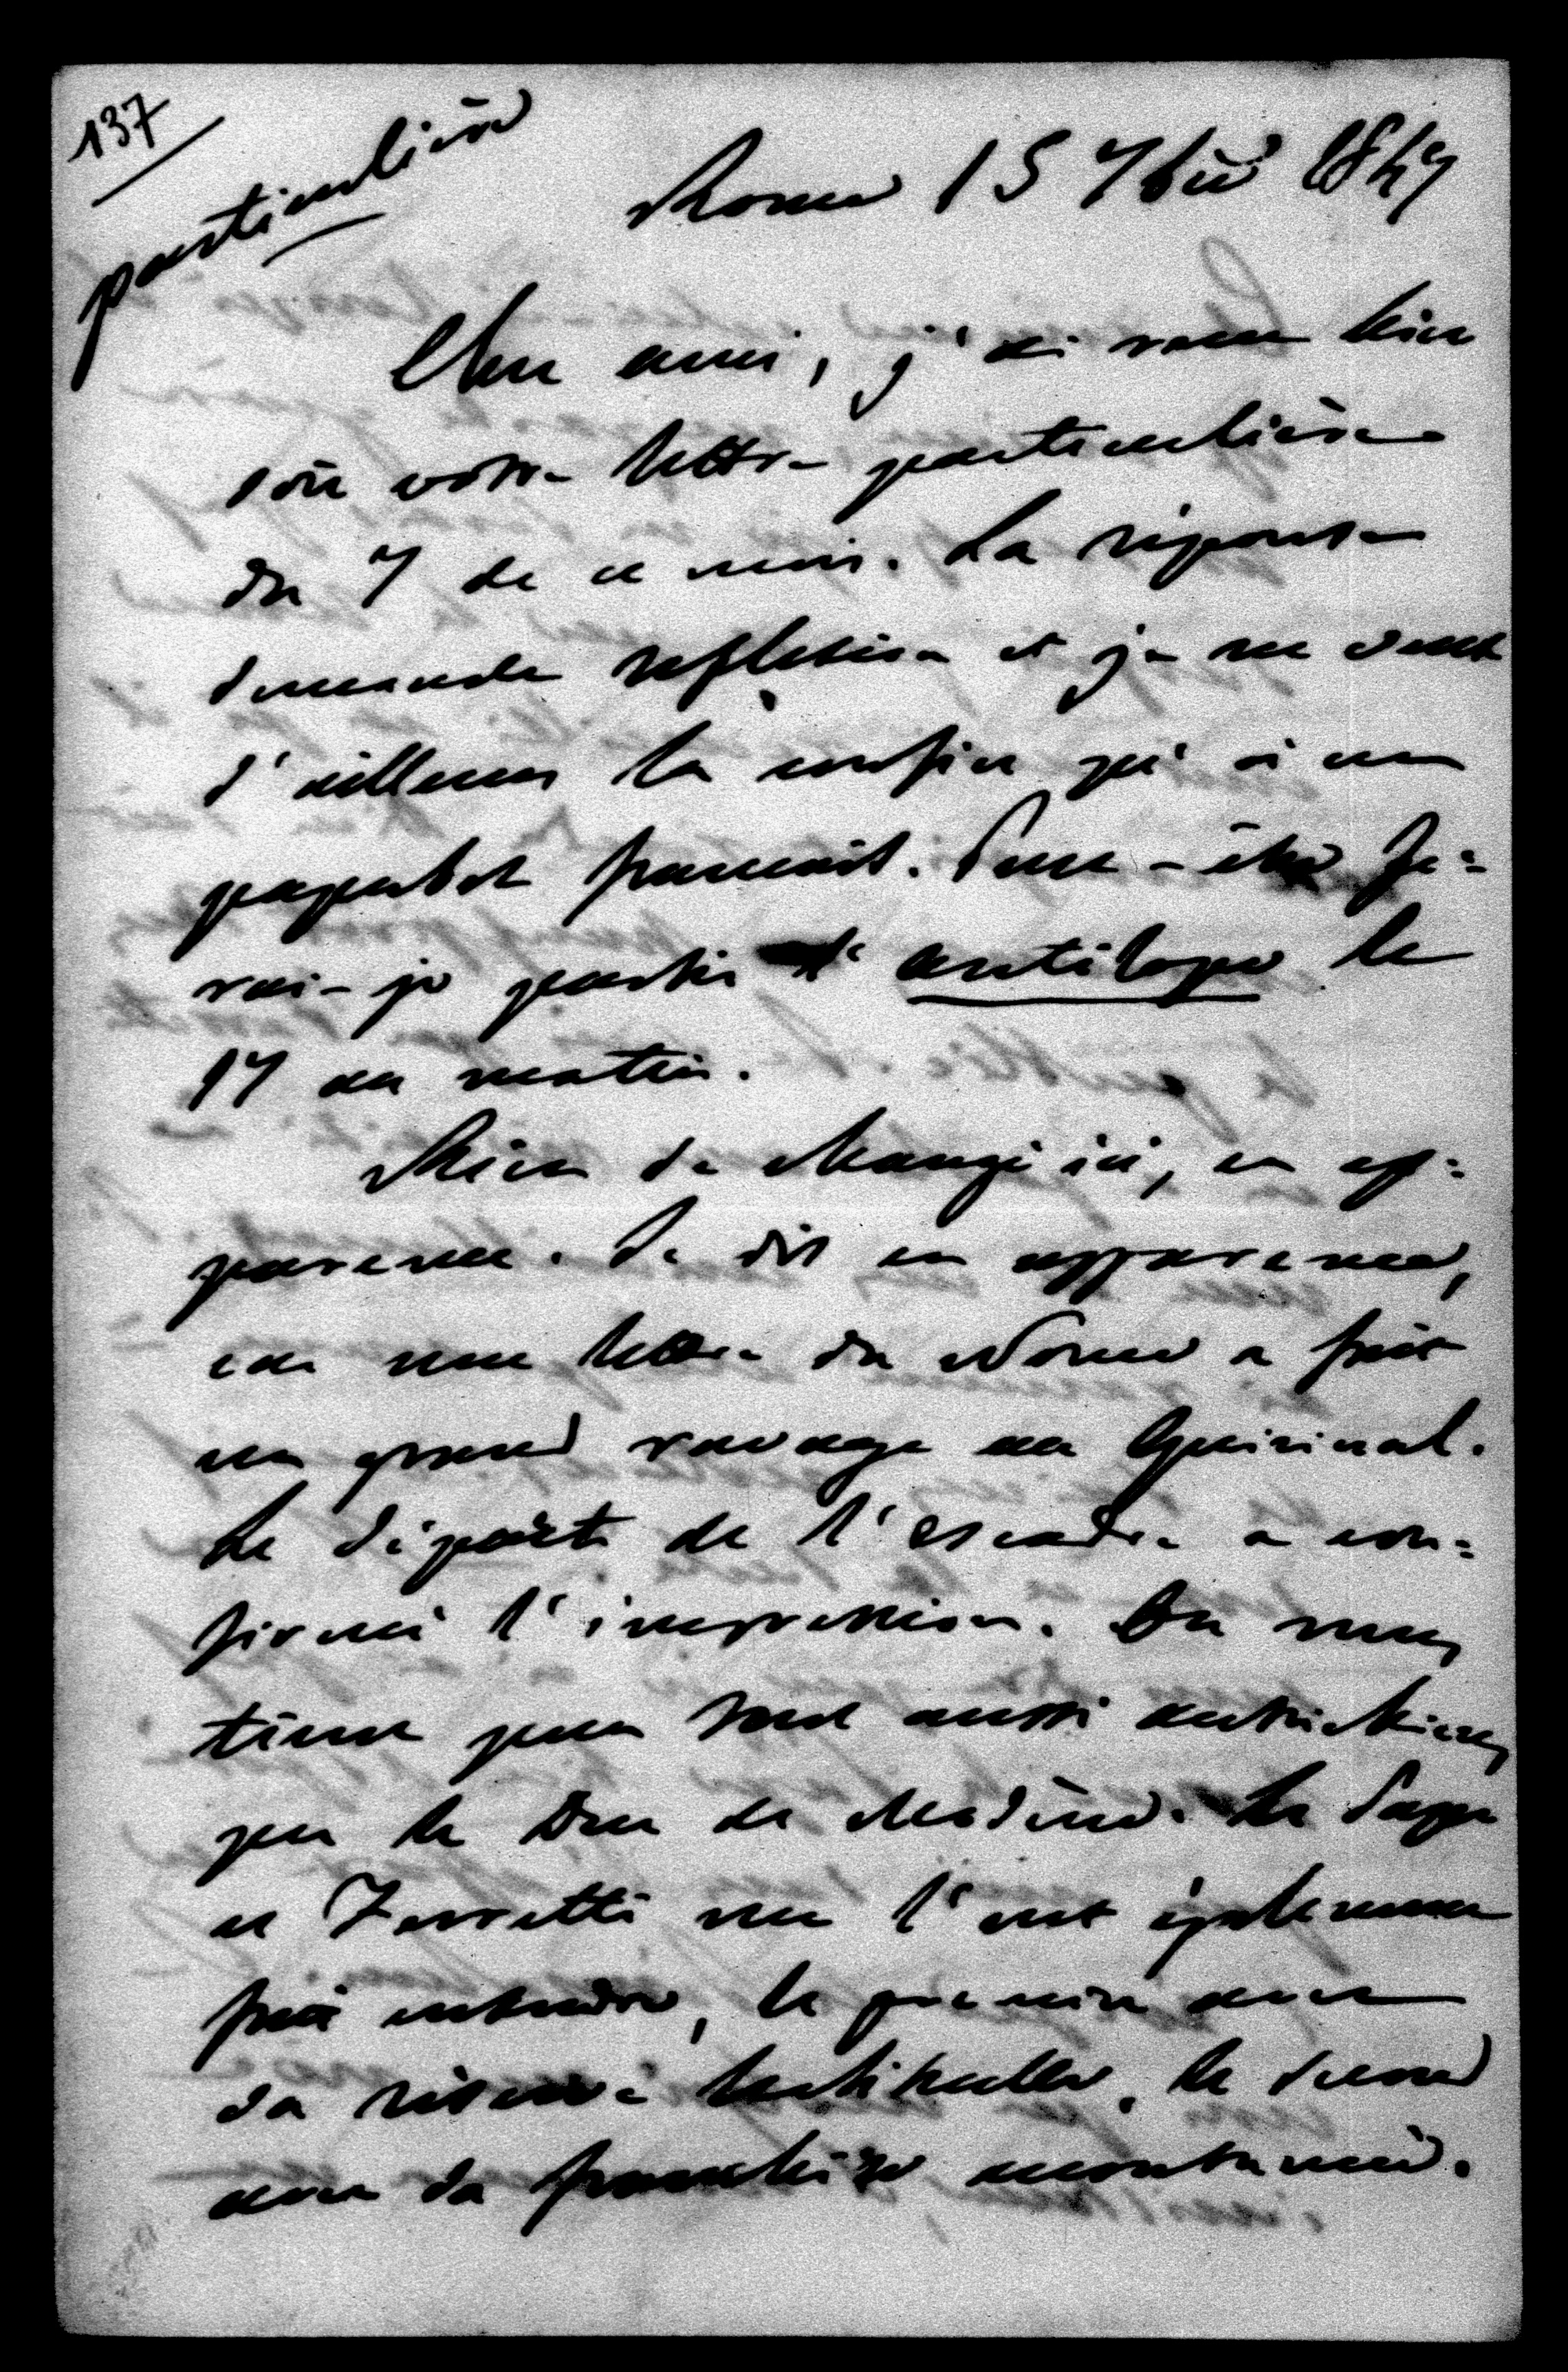 137
particulière
Rome 15 7bre 1847
Cher ami, j'ai reçu hier
soir votre lettre particulière
du 7 de ce mois. La réponse
demande reflexion et je ne veux
d'ailleurs la confier qu'à un
paquebot français. Peut-être fe=
rai-je partir l'antilope le
17 au matin.
Rien de changé ici, en ap=
parence. Je dis en apparence,
car une lettre du Nonce a fait
un grand ravage au Quirinal.
Le départ de l'escadre a con=
firmé l'impression. On nous
tient pour tout aussi autrichiens
que le Duc de Modène. Le Pape
et Ferretti me l'ont également
fait entendre, le premier avec
sa réserve habituelle, le second
avec sa franchise accoutumée.